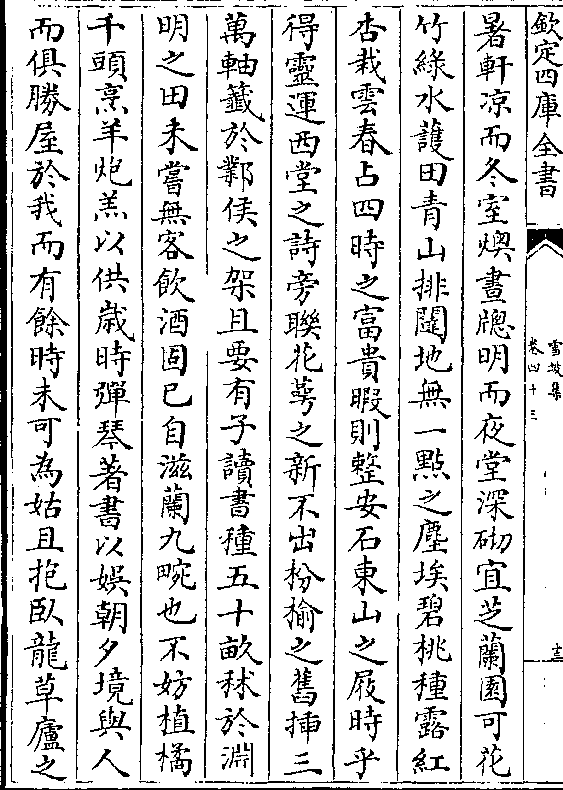 欽定四庫全書
雪坡集
卷四十三
十三
暑軒凉而冬室燠晝牕明而夜堂深砌宜芝蘭園可花
竹綠水護田青山排闥地無一點之塵埃碧桃種露紅
杏栽雲春占四時之富貴暇則整安石東山之屐時乎
得靈運西堂之詩旁聯花萼之新不出枌榆之舊揷三
萬軸籤於鄴侯之架且要有子讀書種五十畝秫於淵
明之田未嘗無客飲酒固已自滋蘭九畹也不妨植橘
千頭烹羊炮羔以供歲時彈琴著書以娛朝夕境與人
而俱勝屋於我而有餘時未可為姑且抱臥龍草廬之